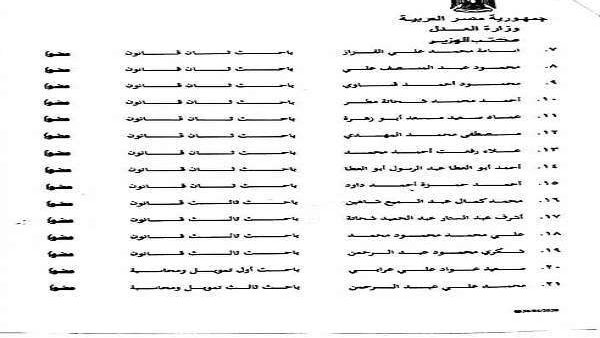 جمهورية مصر العربية
وزارة العدل
مكتب الوزير
٧. أسامة محمد علي القزاز باحث ثان قانون عضوا
٨. محمود عبد المنصف علي باحث ثان قانون عضوا
٩. محمود أحمد قناوي باحث ثان قانون عضوا
١٠. أحمد محمد شحاتة مطر باحث ثان قانون عضوا
١١. عماد سعيد سعد أبو زهرة باحث ثان قانون عضوا
١٢. مصطفى محمد المهدي باحث ثان قانون عضوا
١٣. علاء رفعت أحمد محمد باحث ثان قانون عضوا
١٤. أحمد أبو العطا عبد الرسول أبو العطا باحث ثان قانون عضوا
١٥. أحمد حمزة أحمد داود باحث ثان قانون عضوا
١٦. محمد كمال عبد السميع شاهين باحث ثالث قانون عضوا
١٧. أشرف عبد الستار عبد الحميد شحاتة باحث ثالث قانون عضوا
١٨. علي محمد محمود محمد باحث ثالث قانون عضوا
١٩. شكري محمود عبد الرحمن باحث ثالث قانون عضوا
٢٠. سعيد عواد علي عرابي باحث أول تمويل ومحاسبة عضوا
٢١. محمد علي عبد الرحمن باحث ثالث تمويل ومحاسبة عضوا